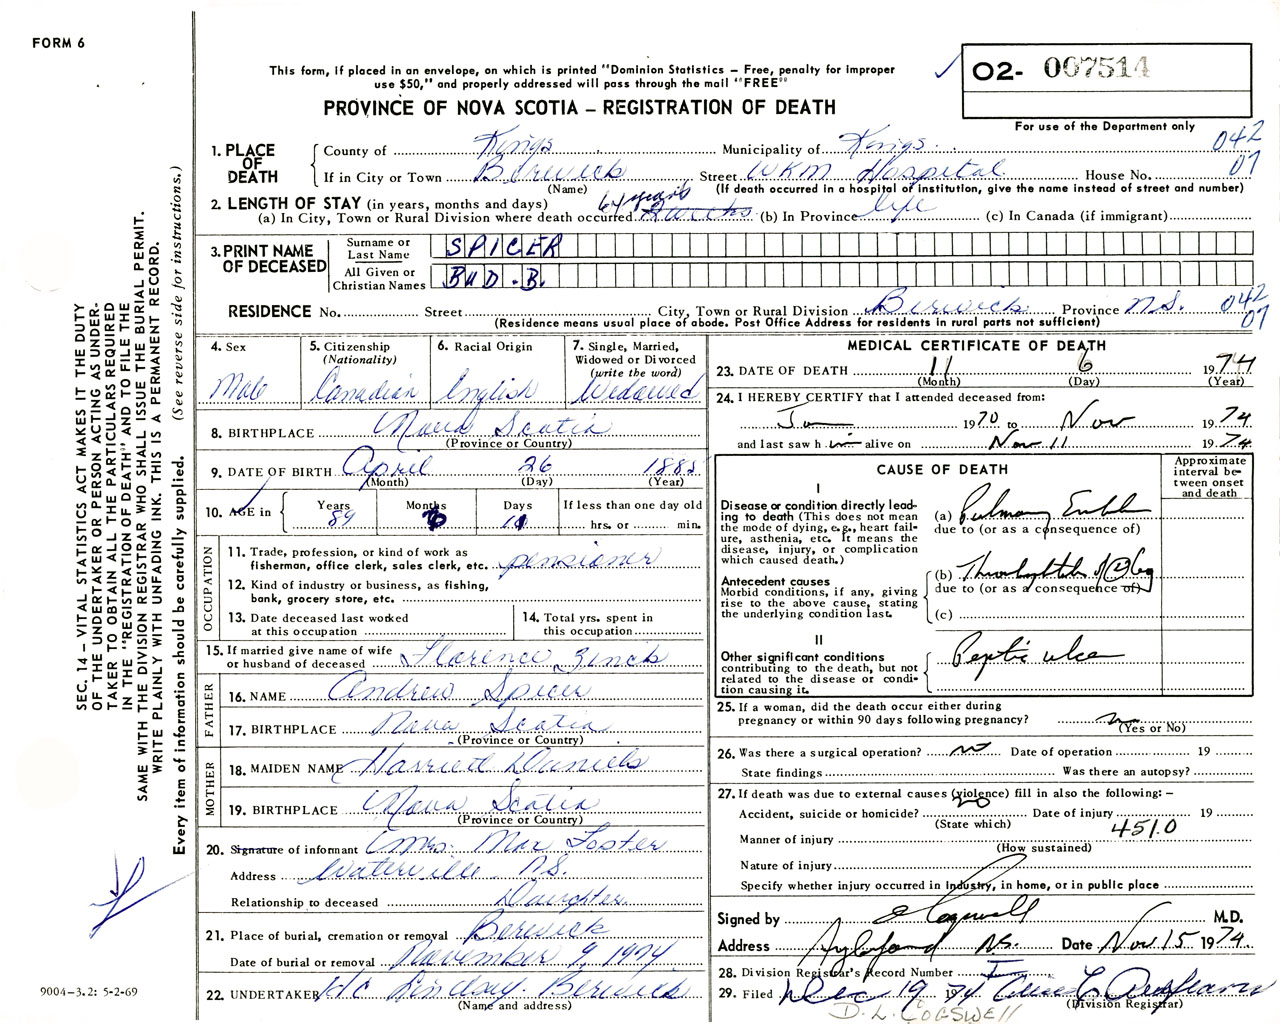 FORM 6
This form, if placed in an envelope, on which is printed "Dominion Statistics – Free, penalty for improper
use $50," and properly addressed will pass through the mail "FREE"
PROVINCE OF NOVA SCOTIA – REGISTRATION OF DEATH
O2- 007514
For use of the Department only
042
07
SEC. 14 – VITAL STATISTICS ACT MAKES IT THE DUTY
OF THE UNDERTAKER OR PERSON ACTING AS UNDER-
TAKER TO OBTAIN ALL THE PARTICULARS REQUIRED
IN THE "REGISTRATION OF DEATH" AND TO FILE THE
SAME WITH THE DIVISION REGISTRAR WHO SHALL ISSUE THE BURIAL PERMIT.
WRITE PLAINLY WITH UNFADING INK. THIS IS A PERMANENT RECORD.
Every item of information should be carefully supplied. (See reverse side for instructions.)
1. PLACE OF DEATH
County of Kings Municipality of Kings
If in City or Town Berwick Street WKM Hospital House No.
(Name) (If death occurred in a hospital of institution, give the name instead of street and number)
2. LENGTH OF STAY (in years, months and days) 64 years
(a) In City, Town or Rural Division where death occurred 2 weeks (b) In Province life (c) In Canada (if immigrant)
3. PRINT NAME OF DECEASED
Surname or Last Name SPICER
All Given or Christian Names BUD. B.
RESIDENCE No. Street City, Town or Rural Division Berwick Province N.S. 042
07
(Residence means usual place of abode. Post Office Address for residents in rural parts not sufficient)
4. Sex
Male
5. Citizenship
(Nationality)
Canadian
6. Racial Origin
English
7. Single, Married,
Widowed or Divorced
(write the word)
Widowed
8. BIRTHPLACE Nova Scotia
(Province or Country)
9. DATE OF BIRTH April 26 1885
(Month) (Day) (Year)
10. AGE in
Years Months Days If less than one day old
89 11 hrs. or min.
OCCUPATION
11. Trade, profession, or kind of work as
fisherman, office clerk, sales clerk, etc. pensioner
12. Kind of industry or business, as fishing,
bank, grocery store, etc.
13. Date deceased last worked
at this occupation
14. Total yrs. spent in
this occupation
15. If married give name of wife
or husband of deceased Florence Zinck
FATHER
16. NAME Andrew Spicer
17. BIRTHPLACE Nova Scotia
(Province or Country)
MOTHER
18. MAIDEN NAME Harriett Daniels
19. BIRTHPLACE Nova Scotia
(Province or Country)
20. Signature of informant Mrs. Max Foster
Address Waterville N.S.
Relationship to deceased Daughter
21. Place of burial, cremation or removal Berwick
Date of burial or removal November 9, 1974
22. UNDERTAKER H C Lindsay. Berwick
(Name and address)
MEDICAL CERTIFICATE OF DEATH
23. DATE OF DEATH 11 6 1974
(Month) (Day) (Year)
24. I HEREBY CERTIFY that I attended deceased from:
Jan 1970 to Nov 1974
and last saw him alive on Nov 11 1974
CAUSE OF DEATH
Approximate
interval be-
tween onset
and death
I
Disease or condition directly lead-
ing to death (This does not mean
the mode of dying, e.g., heart fail-
ure, asthenia, etc. It means the
disease, injury, or complication
which caused death.)
(a) Pulmonary
due to (or as a consequence of)
Antecedent causes
Morbid conditions, if any, giving
rise to the above cause, stating
the underlying condition last.
(b) leg
due to (or as a consequence of)
(c)
II
Other significant conditions
contributing to the death, but not
related to the disease or condi-
tion causing it.
Peptic ulcer
25. If a woman, did the death occur either during
pregnancy or within 90 days following pregnancy? no
(Yes or No)
26. Was there a surgical operation? no Date of operation 19
State findings Was there an autopsy?
27. If death was due to external causes (violence) fill in also the following: –
no
Accident, suicide or homicide? Date of injury 19
(State which)
Manner of injury 451.0
(How sustained)
Nature of injury
Specify whether injury occurred in industry, in home, or in public place
Signed by Cogswell M.D.
Address Aylesford N.S. Date Nov. 15 1974
28. Division Registrar's Record Number
29. Filed Dec 19 1974
(Division Registrar)
D. L. COGSWELL
9004–3.2: 5-2-69